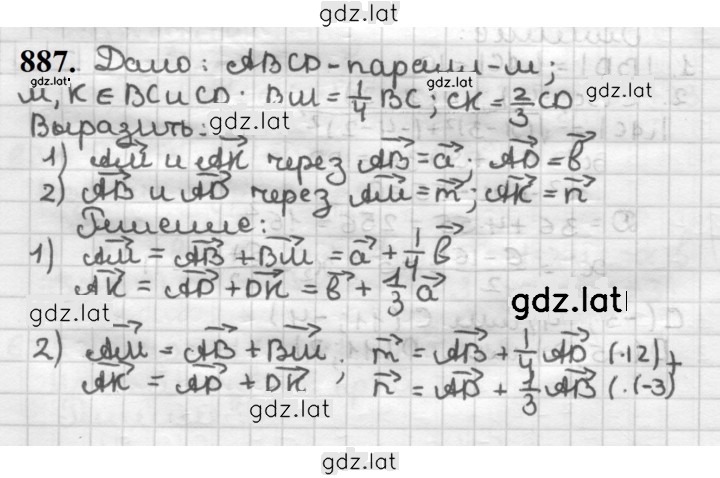 gdz.lat
887. Дано: ABCD - паралл-м;
gdz.lat gdz.lat gdz.lat
M, K ∈ BC и CD. BM = 1/4 BC; CK = 2/3 CD
Выразить: gdz.lat
1) AM⃗ и AK⃗ через AB⃗ = a⃗; AD⃗ = b⃗
2) AB⃗ и AD⃗ через AM⃗ = m⃗; AK⃗ = n⃗
Решение:
1) AM⃗ = AB⃗ + BM⃗ = a⃗ + 1/4 b⃗
AK⃗ = AD⃗ + DK⃗ = b⃗ + 1/3 a⃗
gdz.lat gdz.lat
2) AM⃗ = AB⃗ + BM⃗. m⃗ = AB⃗ + 1/4 AD⃗ (·12) +
AK⃗ = AD⃗ + DK⃗; n⃗ = AD⃗ + 1/3 AB⃗ (·(-3)
gdz.lat
gdz.lat